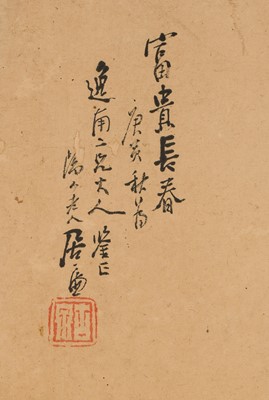 富貴長春
庚秋
逸甫二兄大人鑒正
隔山老人居廉